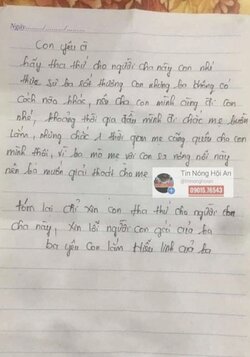 Ngày
Con yêu à
hãy tha thứ cho người cha này con nhé
thực sự ba rất thương con nhưng ba không có
cách nào khác, nếu cha con mình cùng đi con
nhé, khoảng thời gia đây mình đi chắc mẹ buồn
lắm, nhưng chắc 1 thời gian mẹ cũng quên cho con
mình thôi, vì ba mà mẹ với con ra nông nổi này
nên ba muốn giải thoát cho mẹ
Tin Nóng Hội An
@tinnonghoian
09015.76543
tóm lại chỉ xin con tha thứ cho người
cha này, xin lỗi người con gái của ba
ba yêu con lắm Hiếu linh của ba